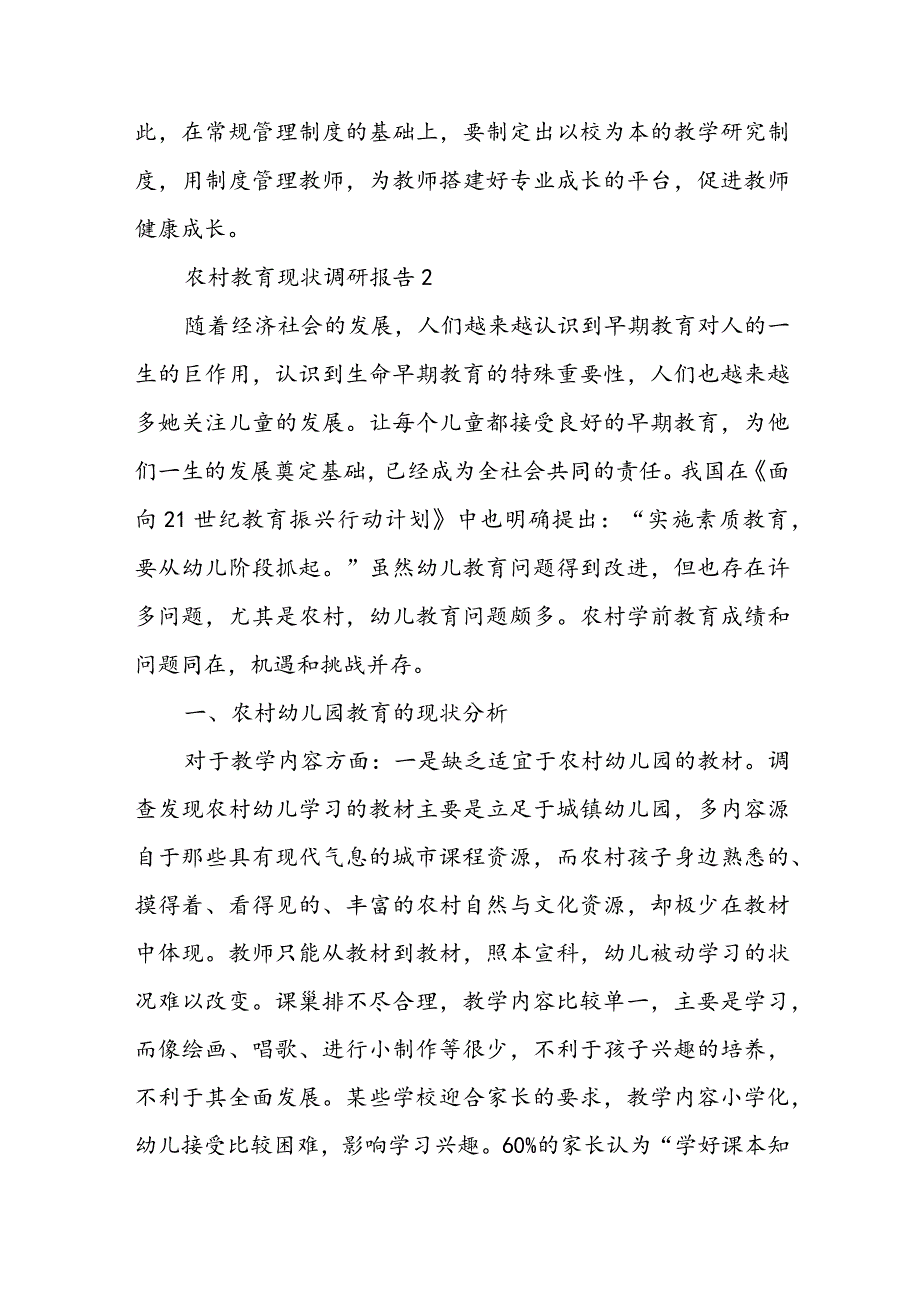 此，在常规管理制度的基础上，要制定出以校为本的教学研究制
度，用制度管理教师，为教师搭建好专业成长的平台，促进教师
健康成长。
农村教育现状调研报告2
随着经济社会的发展，人们越来越认识到早期教育对人的一
生的巨作用，认识到生命早期教育的特殊重要性，人们也越来越
多她关注儿童的发展。让每个儿童都接受良好的早期教育，为他
们一生的发展奠定基础，已经成为全社会共同的责任。我国在《面
向21世纪教育振兴行动计划》中也明确提出：“实施素质教育，
要从幼儿阶段抓起。”虽然幼儿教育问题得到改进，但也存在许
多问题，尤其是农村，幼儿教育问题颇多。农村学前教育成绩和
问题同在，机遇和挑战并存。
一、农村幼儿园教育的现状分析
对于教学内容方面：一是缺乏适宜于农村幼儿园的教材。调
查发现农村幼儿学习的教材主要是立足于城镇幼儿园，多内容源
自于那些具有现代气息的城市课程资源，而农村孩子身边熟悉的、
摸得着、看得见的、丰富的农村自然与文化资源，却极少在教材
中体现。教师只能从教材到教材，照本宣科，幼儿被动学习的状
况难以改变。课巢排不尽合理，教学内容比较单一，主要是学习，
而像绘画、唱歌、进行小制作等很少，不利于孩子兴趣的培养，
不利于其全面发展。某些学校迎合家长的要求，教学内容小学化，
幼儿接受比较困难，影响学习兴趣。60%的家长认为“学好课本知